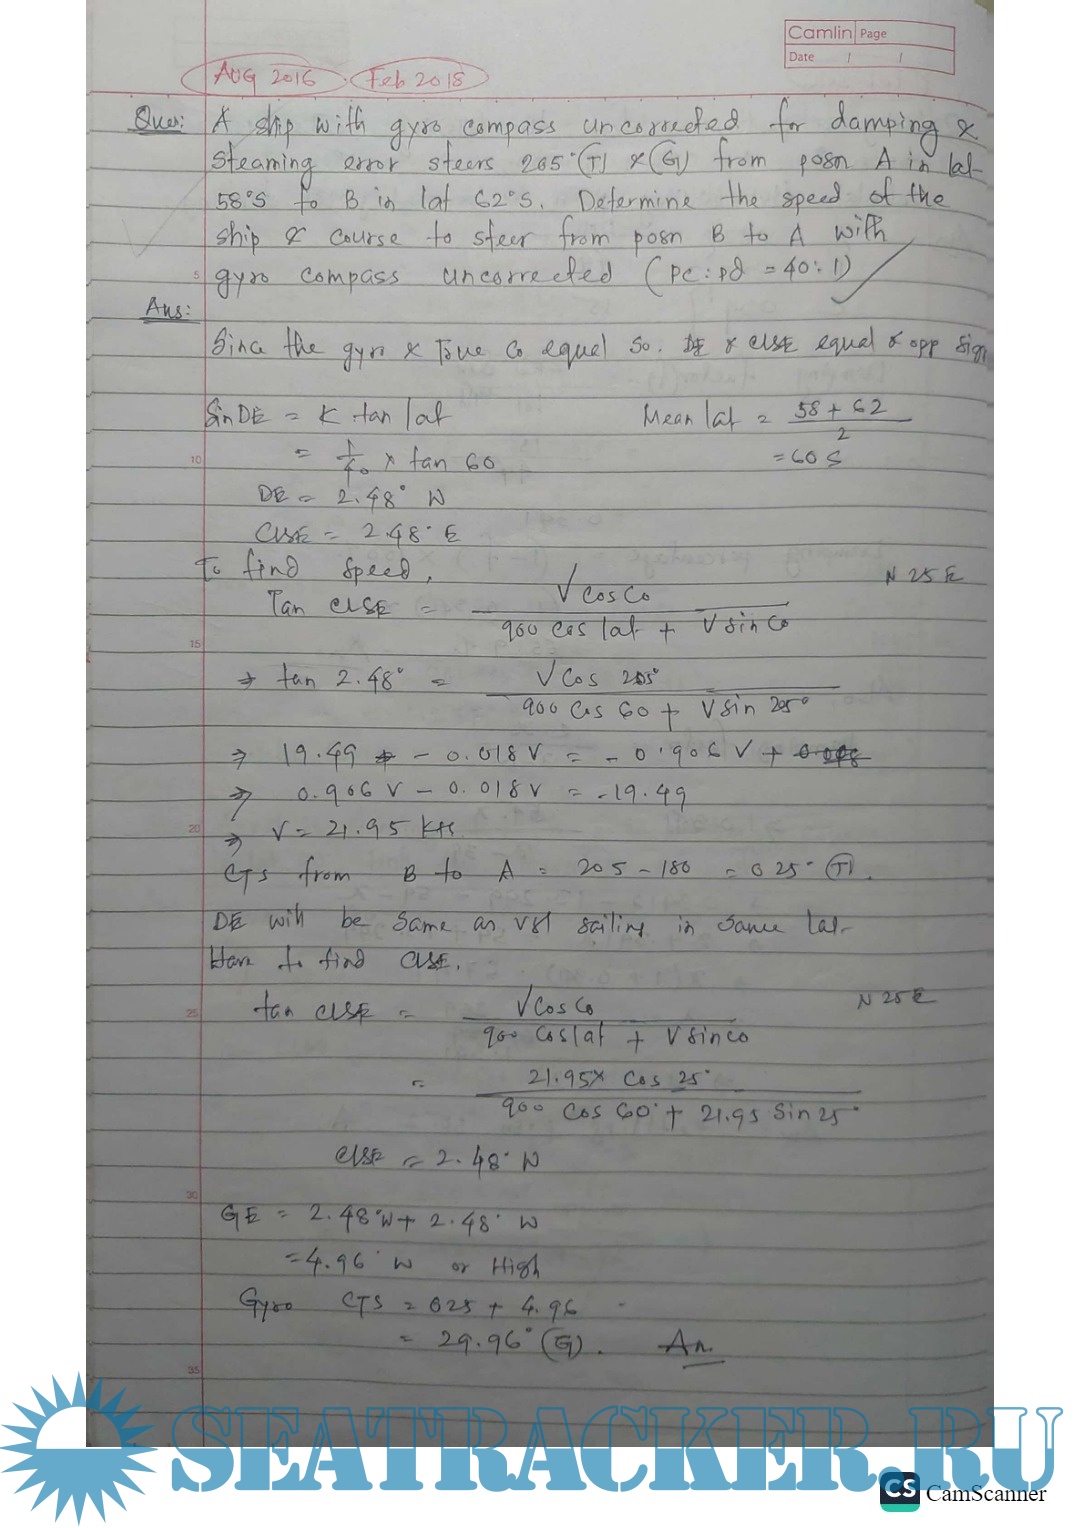 Camlin Page
Date / /
AUG 2016. Feb 2018
Ques: A ship with gyro compass uncorrected for damping &
steaming error steers 205°(T) & (G) from posn A in lat
58°S to B in lat 62°S. Determine the speed of the
ship & course to steer from posn B to A with
5 gyro compass uncorrected (pc:pd = 40:1)
Ans:
Since the gyro & True Co equal so. DE & CLSE equal & opp sign
Sin DE = K tan lat Mean lat = 58 + 62
2
10 = 1/40 x tan 60 = 60 S
DE = 2.48° W
CLSE = 2.48° E
To find speed, N 25 E
Tan CLSE = V cos Co
15 900 cos lat + V sin Co
⇒ tan 2.48° = V Cos 205°
900 Cos 60 + V sin 205°
⇒ 19.49 - 0.018 V = - 0.906 V +
⇒ 0.906 V - 0.018 V = -19.49
20 ⇒ V = 21.95 kts
CTS from B to A = 205 - 180 = 025° (T).
DE will be same as vsl sailing in same lat
Have to find CLSE.
25 tan CLSE = V Cos Co N 25 E
900 Cos lat + V sin co
= 21.95 x Cos 25°
900 Cos 60° + 21.95 Sin 25°
CLSE = 2.48° W
30 GE = 2.48° W + 2.48° W
= 4.96° W or High
Gyro CTS = 025 + 4.96
= 29.96° (G). An.
35
SEATRACKER.RU
CS CamScanner